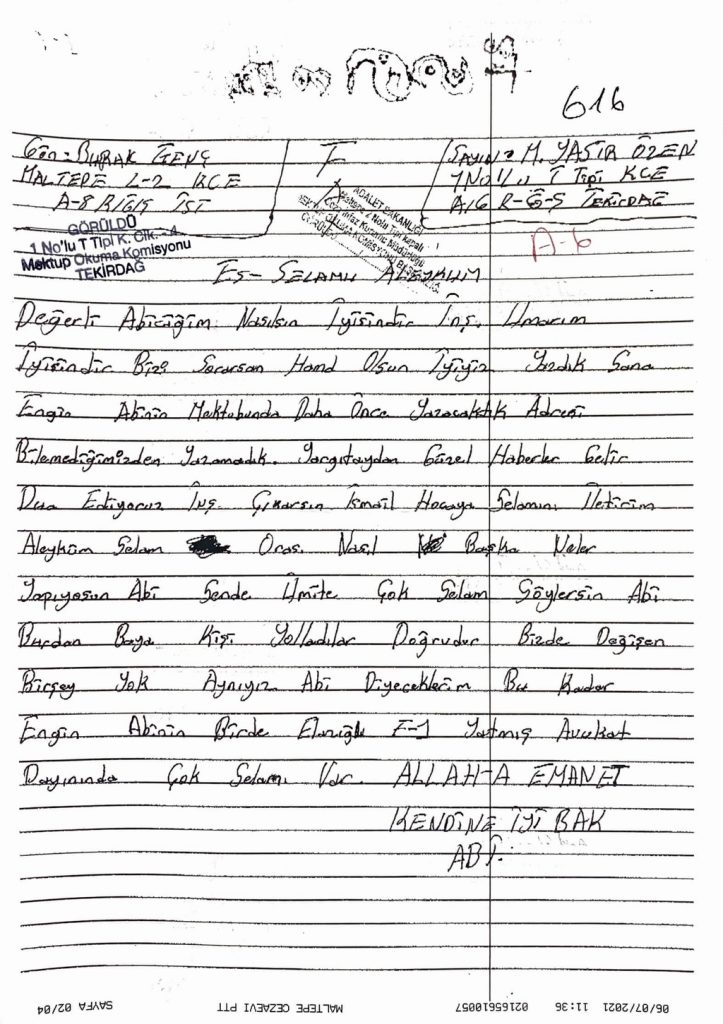 616
Gön: BURAK GENÇ
MALTEPE L-2 KCE
A-8 R/G/S İST
SAYIN: M. YASİR ÖZEN
1 NO'LU T Tipi KCE
A/6 R-G-S TEKİRDAĞ
A-6
GÖRÜLDÜ
1 No'lu T Tipi K. Cİk.
Mektup Okuma Komisyonu
TEKİRDAĞ
ADALET BAKANLIĞI
Maltepe 2 Nolu
ES-SELAMU ALEYKUM
Değerli Abiciğim Nasılsın İyisindir İnş. Umarım
İyisindir Bizi Sorarsan Hamd Olsun İyiyiz Yazdık Sana
Engin Abinin Mektubunda Daha Önce Yazacaktık Adresi
Bilemediğimizden Yazamadık. Yargıtaydan Güzel Haberler Gelir
Dua Ediyoruz İnş. Çıkarsın İsmail Hocaya Selamını İletirim
Aleyküm Selam Orası Nasıl Başka Neler
Yapıyosun Abi Sende Ümite Çok Selam Söylersin Abi
Burdan Baya Kişi Yolladılar Doğrudur Bizde Değişen
Birşey Yok Aynıyız Abi Diyeceklerim Bu Kadar
Engin Abinin Birde F-1 Yatmış Avukat
Dayınında Çok Selamı Var. ALLAH-A EMANET
KENDİNE İYİ BAK
ABİ.
06/07/2021 11:36 02165610057 MALTEPE CEZAEVI PTT SAYFA 02/04